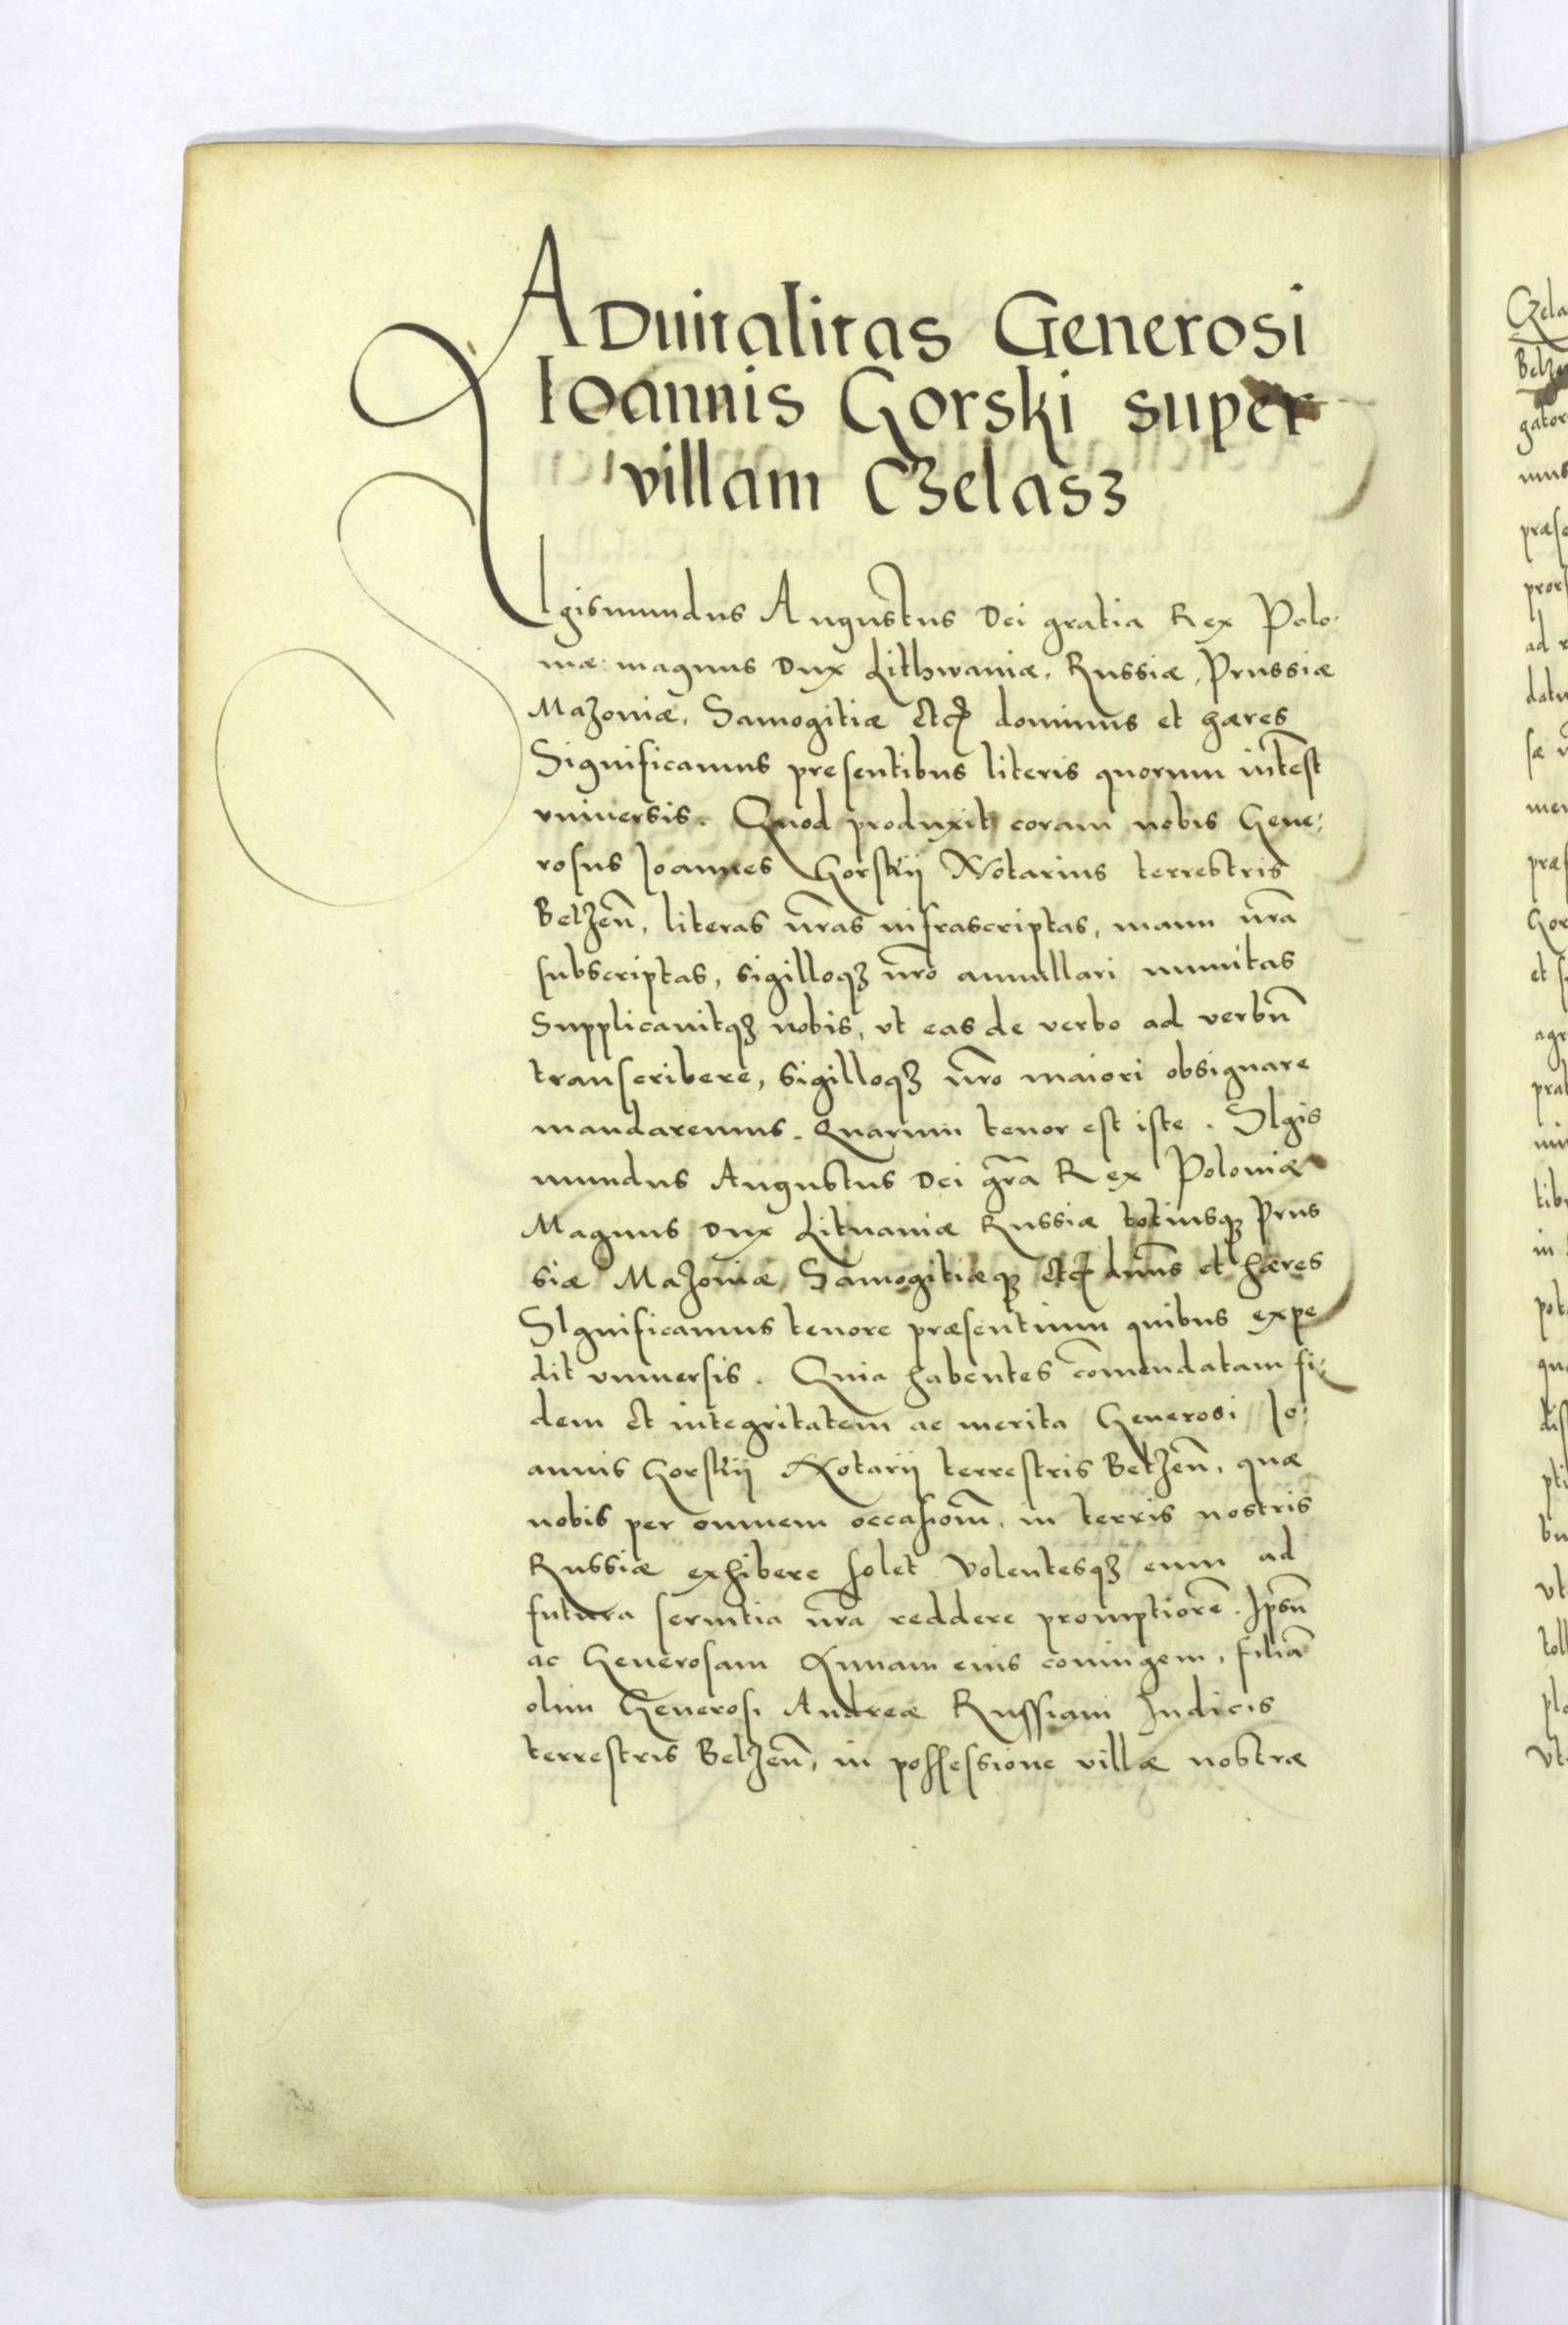 ADuitalitas Generosi
Ioannis Gorski super
villam Czelasz
SIgismundus Augustus Dei gratia Rex Polo:
niæ magnus Dux Lithwaniæ, Russiæ, Prussiæ
Mazoviæ, Samogitiæ etc dominus et hæres
Significamus presentibus literis quorum intest
vniuersis. Quod produxit coram nobis Gene:
rosus Joannes Gorskij Notarius terrestris
Belzeñ, literas nr̃as infrascriptas, manu nr̃a
subscriptas, sigilloqz nr̃o annullari munitas
Supplicauitqz nobis, vt eas de verbo ad verbũ
transcribere, sigilloqz nr̃o maiori obsignare
mandaremus. Quarum tenor est iste. SIgis
mundus Augustus Dei gr̃a Rex Poloniæ
Magnus Dux Lituaniæ Russiæ totiusqz Prus
siæ Mazoviæ, Samogitiæqz etc dnñs et hæres
SIgnificamus tenore præsentium quibus expe
dit vniuersis. Quia habentes com̃endatam fi:
dem et integritatem ac merita Generosi Jo:
annis Gorskij Notarij terrestris Belzeñ, quæ
nobis per omnem occasionẽ, in terris nostris
Russiæ exhibere solet Volentesqz eum ad
futura seruitia nr̃a reddere promptiorẽ. Ipsũ
ac Generosam Annam eius coniugem, filiã
olim Generosi Andreæ Russiani Judicis
terrestris Belzeñ, in possessione villæ nostræ